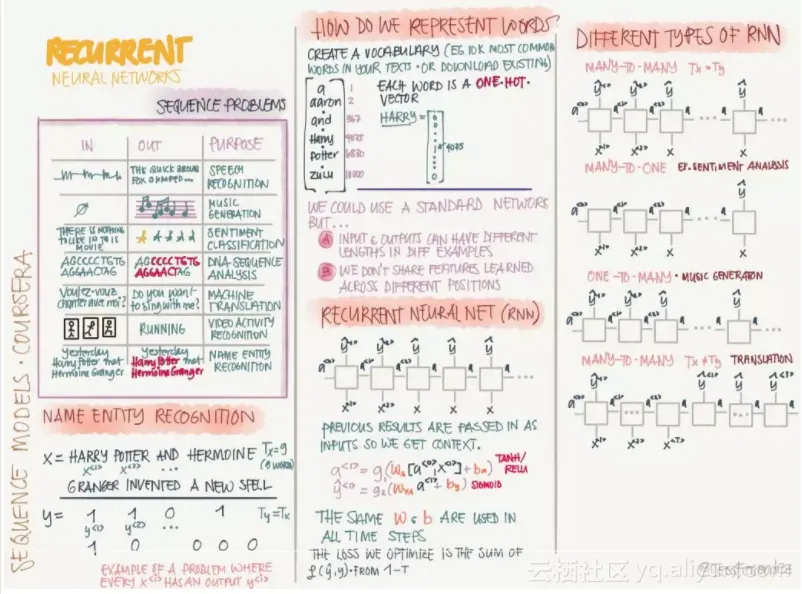 RECURRENT
NEURAL NETWORKS
SEQUENCE PROBLEMS
IN OUT PURPOSE
THE QUICK BROWN FOX JUMPED... SPEECH RECOGNITION
∅ MUSIC GENERATION
THERE IS NOTHING TO LIKE IN THIS MOVIE SENTIMENT CLASSIFICATION
AGCCCCTGTG AGGAACTAG AGCCCCTGTG AGGAACTAG DNA SEQUENCE ANALYSIS
Voulez-vous chanter avec moi? Do you want to sing with me? MACHINE TRANSLATION
RUNNING VIDEO ACTIVITY RECOGNITION
Yesterday Harry Potter met Hermoine Granger Yesterday Harry Potter met Hermoine Granger NAME ENTITY RECOGNITION
NAME ENTITY RECOGNITION
X = HARRY POTTER AND HERMOINE Tx=9
x<1> x<2> ... (9 WORDS)
GRANGER INVENTED A NEW SPELL
y= 1 1 0 1 Ty=Tx
y<1> y<2> ...
1 0 0 0 0
EXAMPLE OF A PROBLEM WHERE
EVERY x<i> HAS AN OUTPUT y<i>
SEQUENCE MODELS · COURSERA
HOW DO WE REPRESENT WORDS?
CREATE A VOCABULARY (EG 10K MOST COMMON
WORDS IN YOUR TEXTS · OR DOWNLOAD EXISTING)
a 1
aaron 2
and 367
Harry 4075
Potter 6830
zulu 10000
EACH WORD IS A ONE·HOT·
VECTOR
HARRY =
4075
WE COULD USE A STANDARD NETWORK
BUT...
A INPUT & OUTPUTS CAN HAVE DIFFERENT
LENGTHS IN DIFF EXAMPLES
B WE DON'T SHARE FEATURES LEARNED
ACROSS DIFFERENT POSITIONS
RECURRENT NEURAL NET (RNN)
ŷ<1> ŷ<2> ŷ ŷ ŷ
a<0> a<1> a a a a ...
x<1> x<2> x x x
PREVIOUS RESULTS ARE PASSED IN AS
INPUTS SO WE GET CONTEXT.
a<1> = g₁(Wa[a<0>, x<1>] + ba) TANH/
RELU
ŷ<1> = g₂(Wya a<1> + by) SIGMOID
THE SAME W & b ARE USED IN
ALL TIME STEPS
THE LOSS WE OPTIMIZE IS THE SUM OF
ℒ(ŷ,y) · FROM 1-T
DIFFERENT TYPES OF RNN
MANY-TO-MANY Tx = Ty
ŷ<1> ŷ<2> ŷ ŷ
a<0> a<1> a<2> a ... a
x<1> x<2> x x
MANY-TO-ONE EX. SENTIMENT ANALYSIS
ŷ
a<0> a<1> a<2> a ... a
x<1> x<2> x x
ONE-TO-MANY · MUSIC GENERATION
ŷ<1> ŷ<2> ŷ ŷ
MANY-TO-MANY Tx ≠ Ty TRANSLATION
x<1> x<2> x<T>
云栖社区 yq.aliyun.com
@TessFerrandez